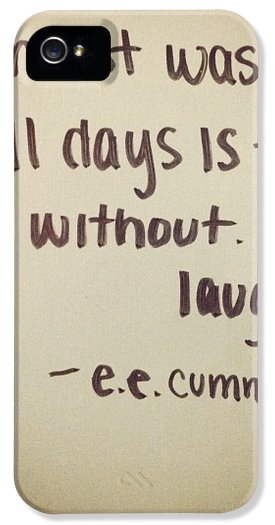 was
days is
without.
laug
- e.e. cumm